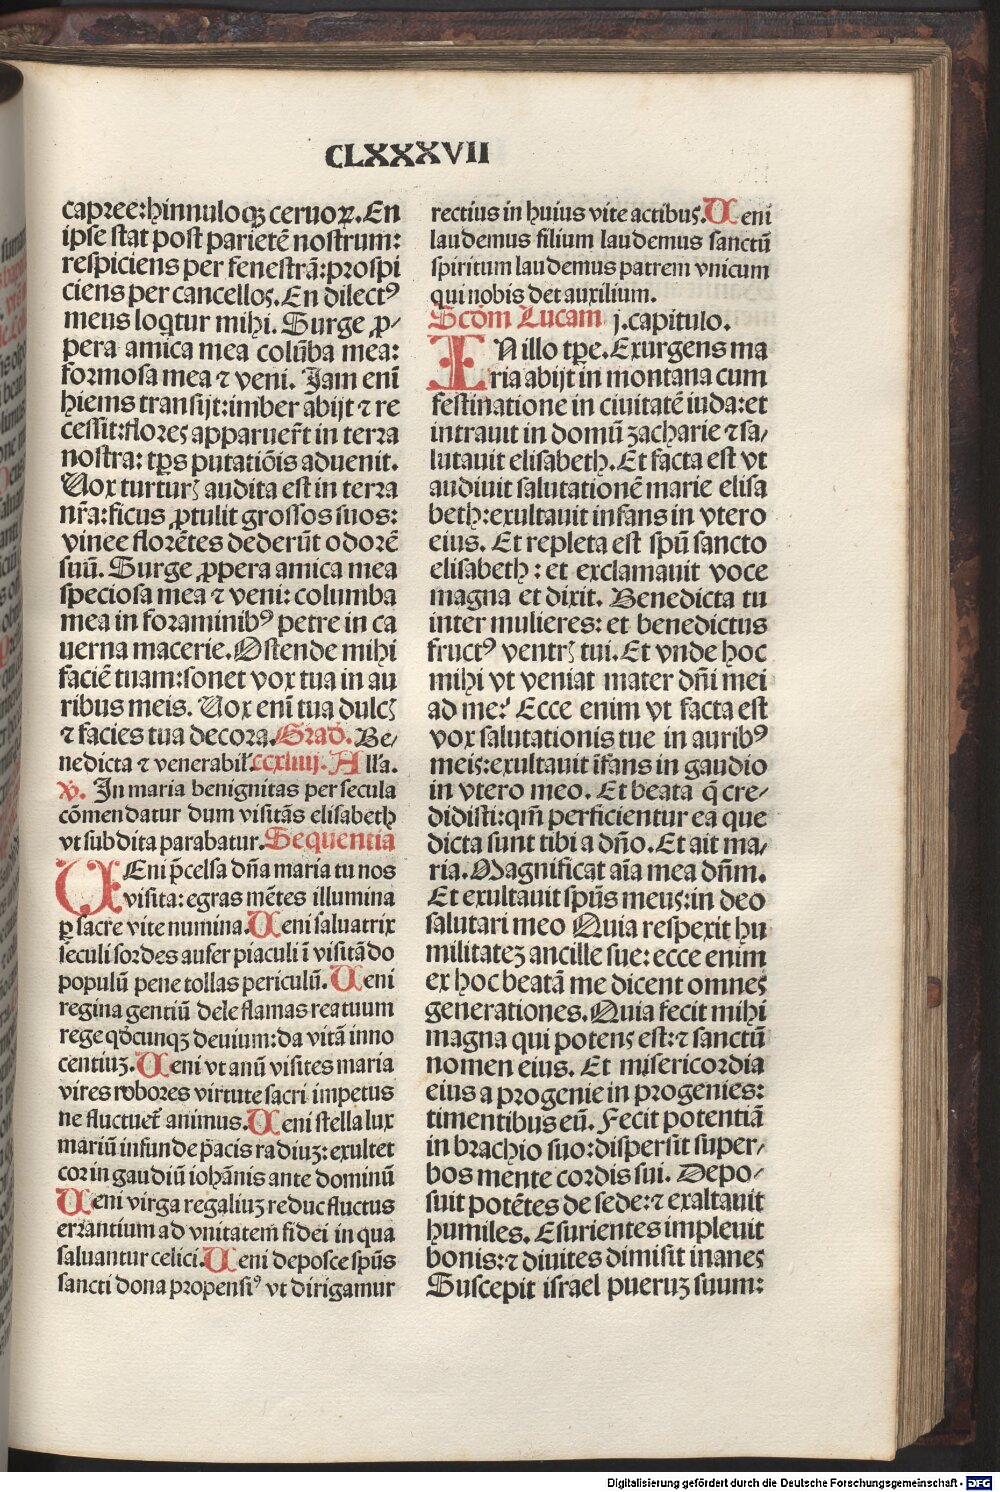 CLXXXVII
capree:hinnuloqꝫ ceruoꝝ.En
ipse stat post parietē nostrum:
respiciens per fenestrā:prospi
ciens per cancellos.En dilectꝰ
meus loqͥtur mihi. Surge ꝓ⸗
pera amica mea colūba mea:
formosa mea ⁊ veni. Jam enī
hiems transijt:imber abijt ⁊ re
cessit:flores apparuerūt in terra
nostra: tꝑs putatiōis aduenit.
Vox turturꝭ audita est in terra
nrā:ficus ꝓtulit grossos suos:
vinee florētes dederūt odorē
suū. Surge ꝓpera amica mea
speciosa mea ⁊ veni: columba
mea in foraminibꝰ petre in ca
uerna macerie.Ostende mihi
faciē tuam:sonet vox tua in au
ribus meis. Vox enī tua dulcꝭ
⁊ facies tua decora.Grad̄. Be⸗
nedicta ⁊ venerabil̄.ccxliiij. Alla.
℣. In maria benignitas per secula
cōmendatur dum visitās elisabeth
vt subdita parabatur.Sequentia
VEni p̄celsa dn̄a maria tu nos
visita: egras mētes illumina
ꝑ sacre vite numina.Veni saluatrix
seculi sordes aufer piaculi ī visitādo
populū pene tollas periculū. Veni
regina gentiū dele flamas reatuum
rege qd̄cunqꝫ deuium:da vitā inno
centiuꝫ. Veni vt anū visites maria
vires robores virtute sacri impetus
ne fluctuet̄ animus.Veni stella lux
mariū infunde pacis radiuꝫ: exultet
cor in gaudiū iohānis ante dominū
Veni virga regaliuꝫ reduc fluctus
errantium ad vnitatem fidei in qua
saluantur celici. Veni deposce spūs
sancti dona propensiꝰ vt dirigamur
rectius in huius vite actibus.Veni
laudemus filium laudemus sanctū
spiritum laudemus patrem vnicum
qui nobis det auxilium.
Scdm̄ Lucam j.capitulo.
IN illo tꝑe.Exurgens ma
ria abijt in montana cum
festinatione in ciuitatē iuda:et
intrauit in domū zacharie ⁊ sa⸗
lutauit elisabeth.Et facta est vt
audiuit salutationē marie elisa
beth:exultauit infans in vtero
eius. Et repleta est spū sancto
elisabeth : et exclamauit voce
magna et dixit. Benedicta tu
inter mulieres: et benedictus
fructꝰ ventrꝭ tui. Et vnde hoc
mihi vt veniat mater dn̄i mei
ad me? Ecce enim vt facta est
vox salutationis tue in auribꝰ
meis:exultauit īfans in gaudio
in vtero meo. Et beata q̄ cre⸗
didisti:qm̄ perficientur ea que
dicta sunt tibi a dn̄o. Et ait ma⸗
ria.Magnificat aīa mea dn̄m.
Et exultauit spūs meus:in deo
salutari meo Quia respexit hu
militateꝫ ancille sue: ecce enim
ex hoc beatā me dicent omnes
generationes.Quia fecit mihi
magna qui potens est:⁊ sanctū
nomen eius. Et misericordia
eius a progenie in progenies:
timentibus eū. Fecit potentiā
in brachio suo:dispersit super⸗
bos mente cordis sui. Depo⸗
suit potētes de sede:⁊ exaltauit
humiles. Esurientes impleuit
bonis:⁊ diuites dimisit inanes
Suscepit israel pueruꝫ suum:
Digitalisierung gefördert durch die Deutsche Forschungsgemeinschaft - DFG